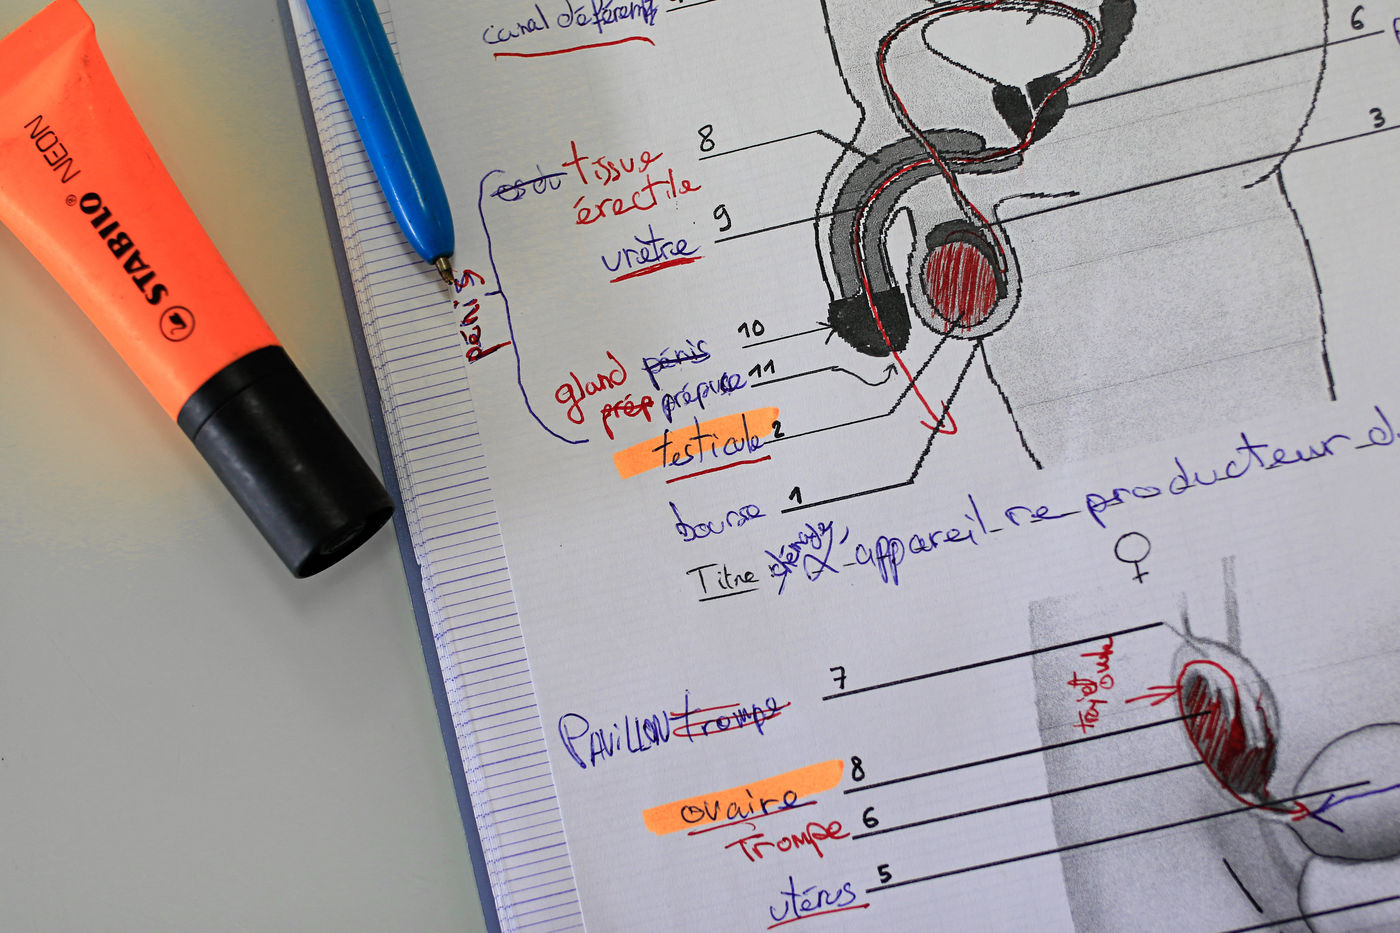 canal déférent
6
3
8
tissue
érectile
9
urètre
pénis
10
gland pénis
11
prép prépuce
testicule 2
bourse 1
Titre
appareil re producteur d
♀
7
trajet
PAVILLON trompe
8
ovaire
6
Trompe
5
utérus
STABILO® NEON